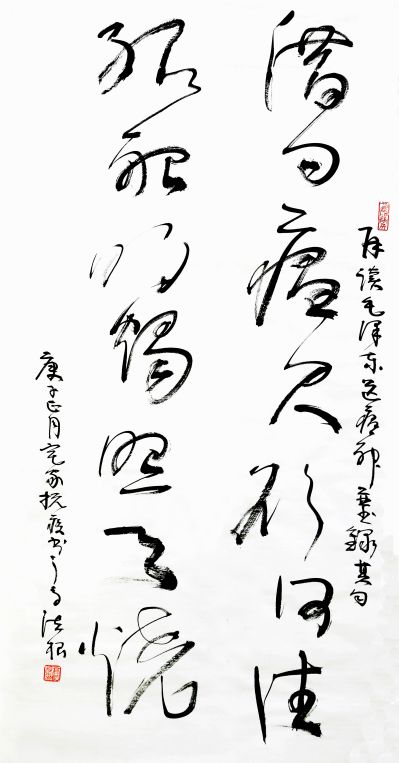 借问瘟君欲何往
纸船明燭照天燒
拜读毛泽东送瘟神 錄其句
庚子正月宅家抗疫书